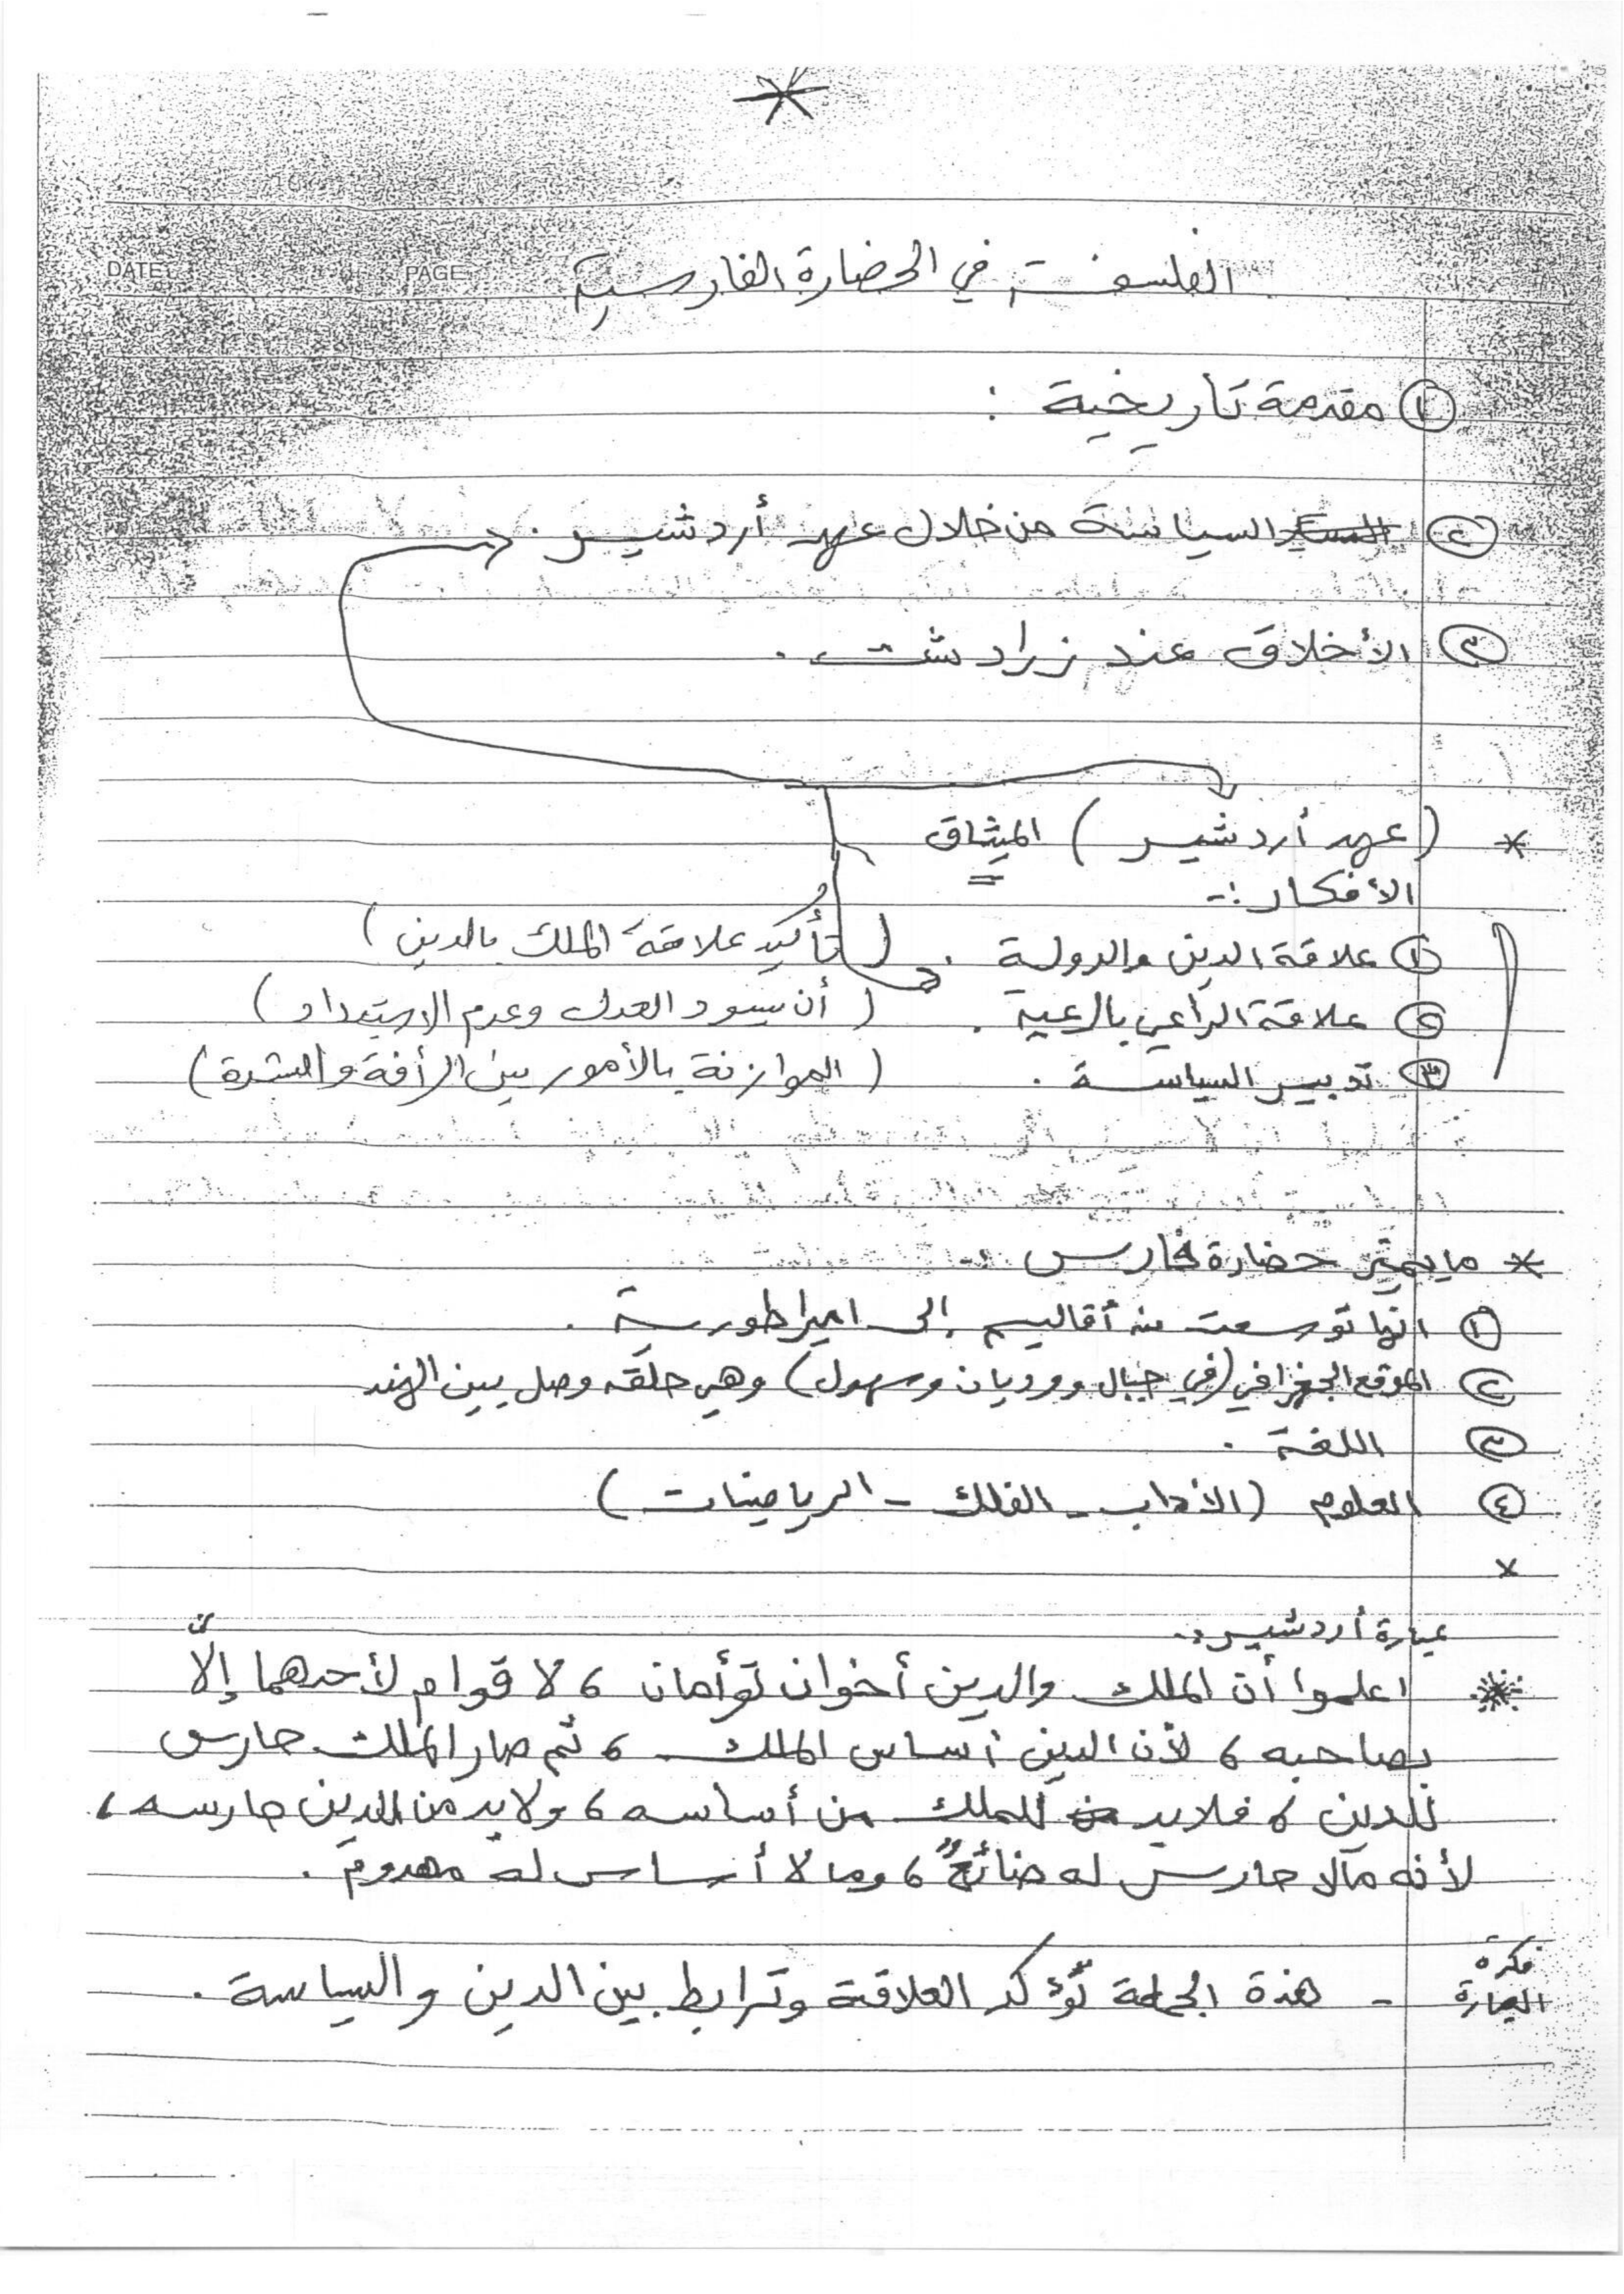 DATE: PAGE
الفلسفة في الحضارة الفارسية
① مقدمة تاريخية :
② السياسة من خلال عهد أردشير .
③ الأخلاق عند زرادشت .
* (عهد أردشير) الميثاق
الأفكار :-
① علاقة الدين والدولة . (تأكيد علاقة الملك بالدين)
② علاقة الراعي بالرعية . (أن يسود العدل وعدم الإستبداد)
③ تدبير السياسة . (الموازنة بالأمور بين الرأفة والشدة)
* ما يميّز حضارة فارس :-
① انها توسعت من أقاليم إلى امبراطورية .
② الموقع الجغرافي (في جبال ووديان وسهول) وهي حلقه وصل بين الهند
③ اللغة .
④ العلوم (الآداب - الفلك - الرياضيات)
×
عبارة أردشير :-
* اعلموا أن الملك والدين أخوان توأمان ، لا قوام لأحدهما إلّا
بصاحبه ، لأن الدين أساس الملك ، ثم صار الملك حارس
للدين ، فلابد للملك من أساسه ، ولابد من الدين حارسه ،
لأنه مالا حارس له ضائع ، وما لا أساس له مهدوم .
فكرة العبارة - هذة الجملة تؤكد العلاقة وترابط بين الدين والسياسة .